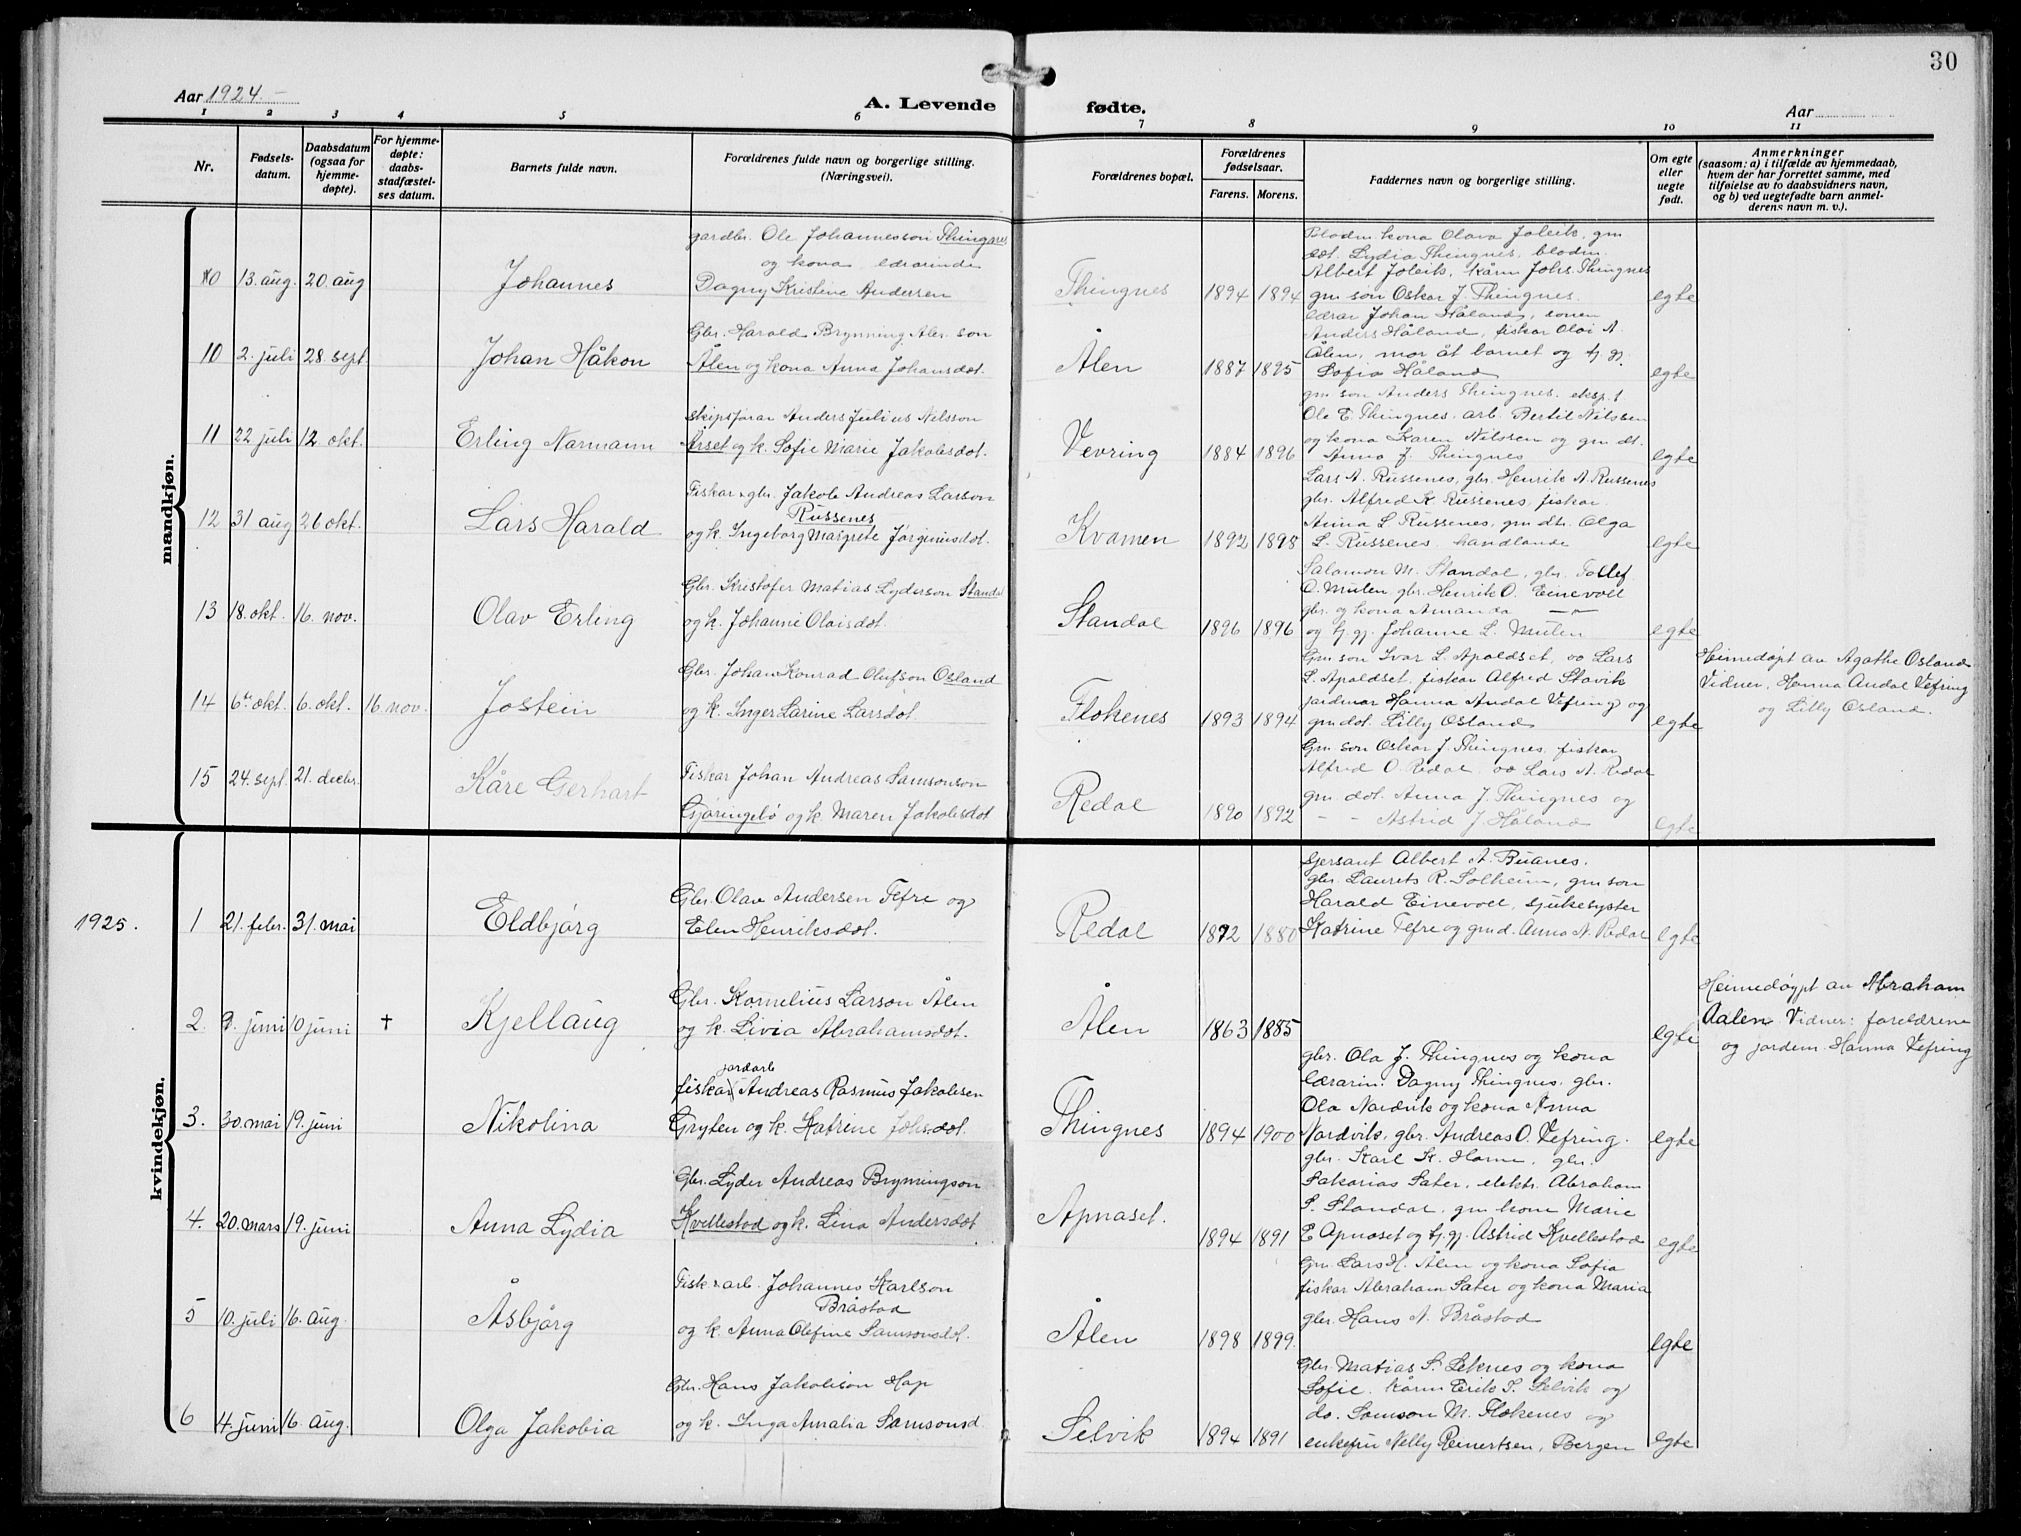 30
Aar 1924.
A. Levende
fødte.
Aar
1 2 3 4 5 6 7 8 9 10 11
Nr.
Fødsels-
datum.
Daabsdatum
(ogsaa for
hjemme-
døpte).
For hjemme-
døpte:
daabs-
stadfæstel-
ses datum.
Barnets fulde navn.
Forældrenes fulde navn og borgerlige stilling.
(Næringsvei).
Forældrenes bopæl.
Forældrenes
fødselsaar.
Farens. Morens.
Faddernes navn og borgerlige stilling.
Om egte
eller
uegte
født.
Anmerkninger
(saasom: a) i tilfælde av hjemmedaab,
hvem der har forrettet samme, med
tilføielse av to daabsvidners navn,
og b) ved uegtefødte barn anmel-
derens navn m. v.).
mandkjøn.
10 13. aug. 20. aug Johannes
gardbr. Ole Johannesson Thingnes
og kona lærarinde
Dagny Kristine Andersen
Thingnes 1894 1894
kona Olava Joleik, gm
dot. Lydia Thingnes,
Albert Joleik, kårm Johs. Thingnes
gm son Oskar J. Thingnes.
egte
10 2. juli 28. sept. Johan Håkon
Gbr. Harald Brynning Abr. son
Ålen og kona Anna Johansdot.
Ålen 1887 1895
lærar Johan Håland, sonen
Anders Håland, fiskar Olai A.
Ålen, mor åt barnet og tj. gj.
Sofia Håland
egte
11 22 juli 12 okt. Erling Narmann
Skipsførar Anders Julius Nilsson
Årset og k. Sofie Marie Jakobsdot.
Vevring 1884 1896
gm son Anders Thingnes, eksp.
Ole E. Thingnes, arb. Bertil Nilssen
og kona Karen Nilssen og gm dt.
Anna J. Thingnes
egte
12 31 aug 26 okt. Lars Harald
Fiskar gbr. Jakob Andreas Larson
Russenes
og k. Ingeborg Margrete Jørginusdot.
Kvamen 1892 1898
Lars A. Russenes, gbr. Henrik A. Russenes
gbr. Alfred K Russenes, fiskar
Anna L Russenes, gm dtr. Olga
L. Russenes handlande
egte
13 18. okt. 16. nov. Olav Erling
Gbr. Kristofer Matias Lyderson Standal
og k. Johanne Olaisdot.
Standal 1896 1896
Salamon M. Standal, gbr. Tollef
O. Mulen gbr. Henrik O. Einevoll
gbr. og kona Amanda —"—
og tj. gj. Johanne L. Mulen
egte
14 6. okt. 6. okt. 16. nov. Jostein
Gbr. Johan Konrad Olufson Osland
og k. Inger Larine Larsdot.
Flokenes 1893 1894
Gm son Ivar L. Apaldset, do Lars
L. Apaldset, fiskar Alfred Stavik
jordmor Hanna Andal Vefring og
gm dot. Lilly Osland
egte
Heimedøpt av Agathe Osland
Vidner, Hanna Andal Vefring
og Lilly Osland.
15 24. sept. 21. decbr. Kåre Gerhart
Fiskar Johan Andreas Samsonson
Gjøringebø og k. Maren Jakobsdot
Redal 1890 1892
Gm son Oskar J. Thingnes, fiskar
Alfred O. Redal, do Lars A. Redal
gm dot. Anna J. Thingnes og
- - Astrid J. Håland
egte
kvindekjøn.
1925. 1 21. febr. 31. mai Eldbjørg
Gbr. Olav Andersen Tefre og
Elen Henriksdot.
Redal 1872 1880
Sjersant Albert A. Buanes.
gbr. Laurits R. Solheim, gm son
Harald Einevoll, sjukesyster
Katrine Tefre og gmd. Anna N. Redal
egte
2. 9. juni 10 juni † Kjellaug
Gbr. Kornelius Larson Ålen
og k. Livia Abrahamsdot.
Ålen 1863 1885
egte
Heimedøypt av Abraham
Aalen. Vidner: foreldrene
og jordem. Hanna Vefring
3. 30. mai 19. juni Nikolina
jordarb
fiskar Andreas Rasmus Jakobsen
Gryten og k. Katrine Johsdot.
Thingnes 1894 1900
gbr. Ola J. Thingnes og kona
lærarin. Dagny Thingnes, gbr.
Ola Nordvik og kona Anna
Nordvik, gbr. Andreas O. Vefring.
egte
4. 20. mars 19. juni Anna Lydia
Gbr. Lyder Andreas Brynningson
Kvellestad og k. Lina Andersdot
Apnaset. 1894 1891
gbr. Karl K. Horne, gbr.
Sakarias Sater, elektr. Abraham
S. Standal, gm kone Marie
E Apnaset og tj. gj. Astrid Kvellestad
egte
5 10. juli 16. aug. Åsbjørg
Fisk. arb. Johannes Karlson
Bråstad
og k. Anna Olefine Samsonsdot.
Ålen 1898 1899.
Gm. Lars H. Ålen og kona Sofia
fiskar Abraham Sater og kona Maria
gbr. Hans N. Bråstad
egte
6 4. juni 16. aug. Olga Jakobia
Gbr. Hans Jakobson Hop
og k. Inga Amalia Samsonsd
Selvik 1894 1891
Gbr. Matias S. Leknes og kona
Sofie. kårm Erik T. Selvik og
do. Samson M. Flokenes og
enkefru Nelly Reinertsen, Bergen
egte